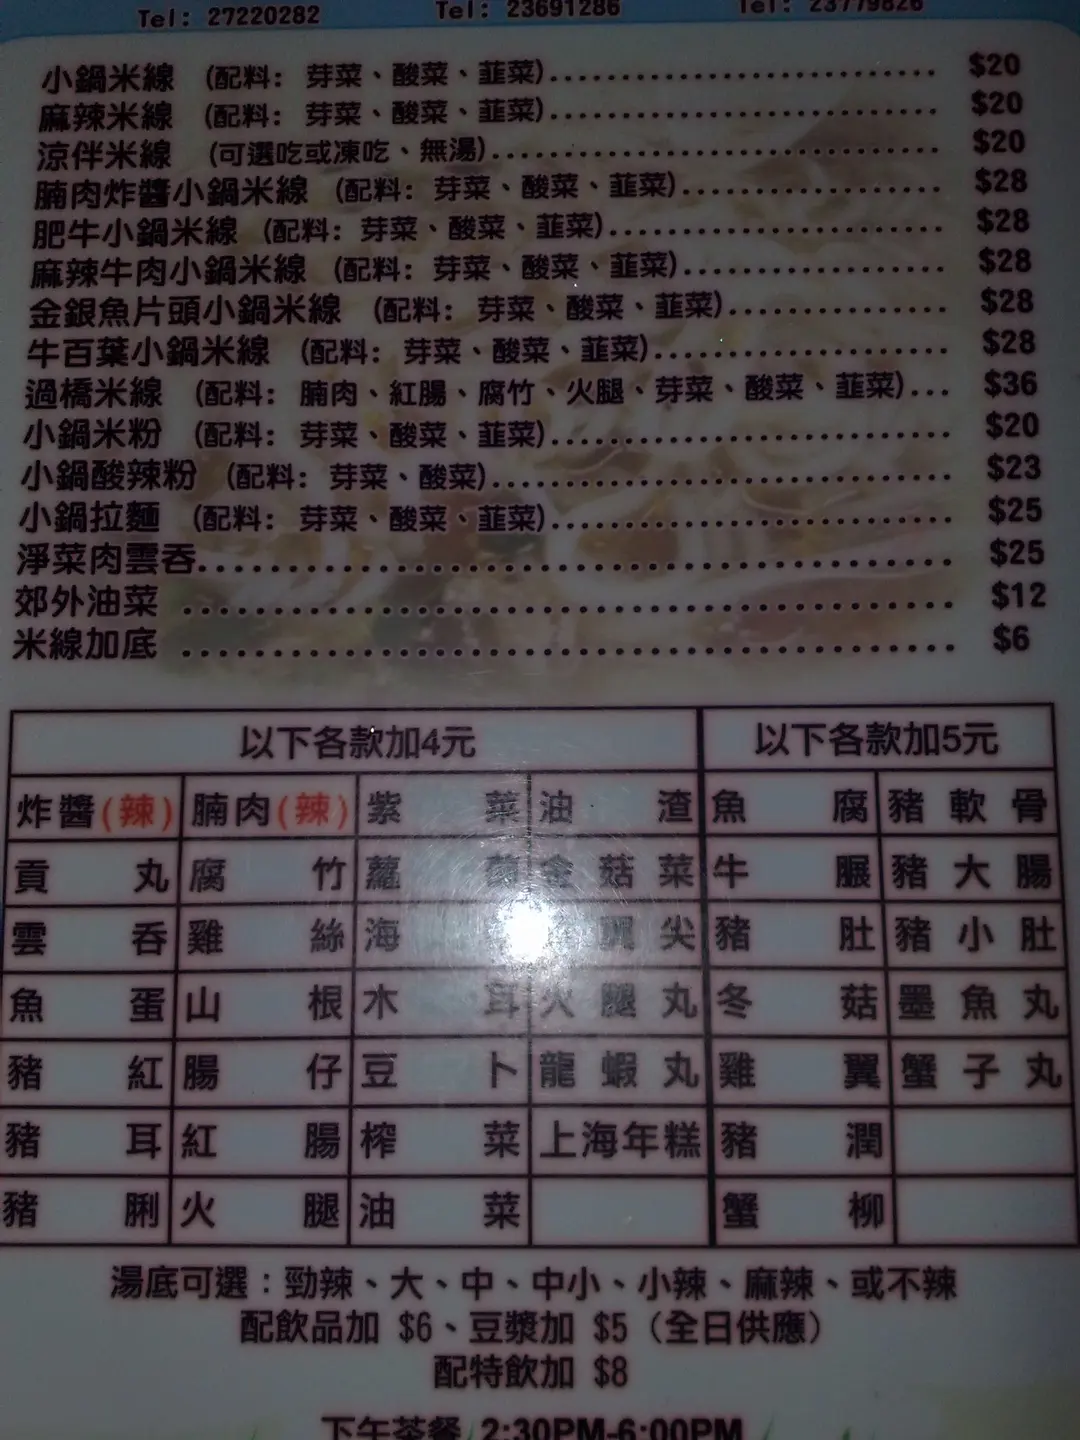 Tel: 27220282 Tel: 23691286 Tel: 23779826
小鍋米線 (配料: 芽菜、酸菜、韮菜)............................ $20
麻辣米線 (配料: 芽菜、酸菜、韮菜)............................ $20
涼伴米線 (可選吃或凍吃、無湯)................................ $20
腩肉炸醬小鍋米線 (配料: 芽菜、酸菜、韮菜).................. $28
肥牛小鍋米線 (配料: 芽菜、酸菜、韮菜)....................... $28
麻辣牛肉小鍋米線 (配料: 芽菜、酸菜、韮菜).................. $28
金銀魚片頭小鍋米線 (配料: 芽菜、酸菜、韮菜)............... $28
牛百葉小鍋米線 (配料: 芽菜、酸菜、韮菜).................... $28
過橋米線 (配料: 腩肉、紅腸、腐竹、火腿、芽菜、酸菜、韮菜)... $36
小鍋米粉 (配料: 芽菜、酸菜、韮菜)............................ $20
小鍋酸辣粉 (配料: 芽菜、酸菜)................................ $23
小鍋拉麵 (配料: 芽菜、酸菜、韮菜)............................ $25
淨菜肉雲吞.................................... $25
郊外油菜 ..................................... $12
米線加底 ..................................... $6
以下各款加4元 以下各款加5元
炸醬(辣) 腩肉(辣) 紫菜 油渣 魚腐 豬軟骨
貢丸 腐竹 蘿蔔 金菇菜 牛𦟌 豬大腸
雲吞 雞絲 海 翼尖 豬肚 豬小肚
魚蛋 山根 木耳 火腿丸 冬菇 墨魚丸
豬紅 腸仔 豆卜 龍蝦丸 雞翼 蟹子丸
豬耳 紅腸 榨菜 上海年糕 豬潤
豬脷 火腿 油菜 蟹柳
湯底可選：勁辣、大、中、中小、小辣、麻辣、或不辣
配飲品加 $6、豆漿加 $5（全日供應）
配特飲加 $8
下午茶餐 2:30PM-6:00PM